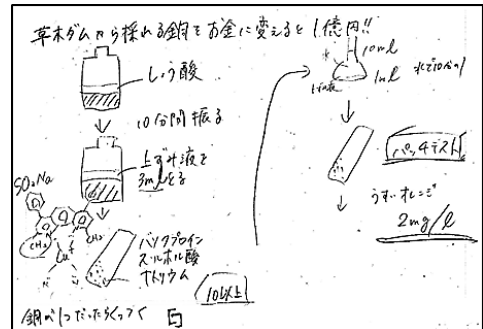 草木ダムから採れる銅をお金に変えると1億円!!
しょう酸
10分間振る
上ずみ液を
3mlとる
SO₃Na
CH₃
CH₃
Cu⁺
バソクプロイン
スルホル酸
ナトリウム
10以上
銅が1つだったらくっつく
水
10ml
1ml
水で10分の1
パックテスト
うすいオレンジ
2mg/l